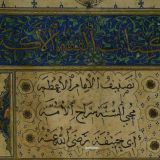 تصنيف الامام الاعظم
محيي السنة سراج الامة
ابي حنيفة رضي الله عنه